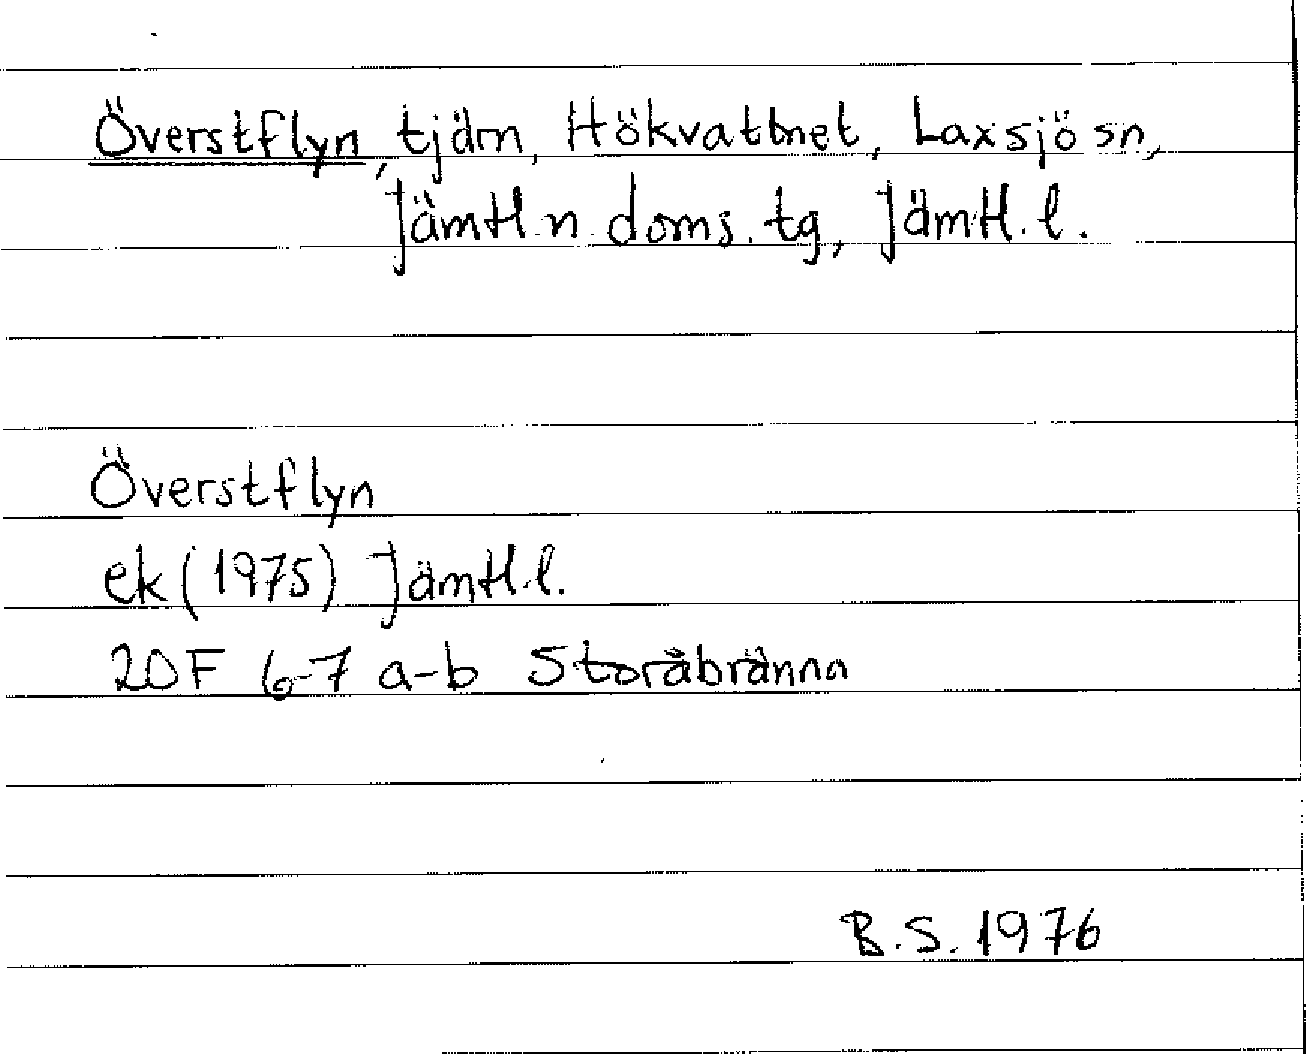 Överstflyn, tjärn, Hökvattnet, Laxsjö sn,
Jämtl.n doms. tg, Jämtl. l.
Överstflyn
ek (1975) Jämtl.l.
20F 6-7 a-b Storåbränna
B.S. 1976